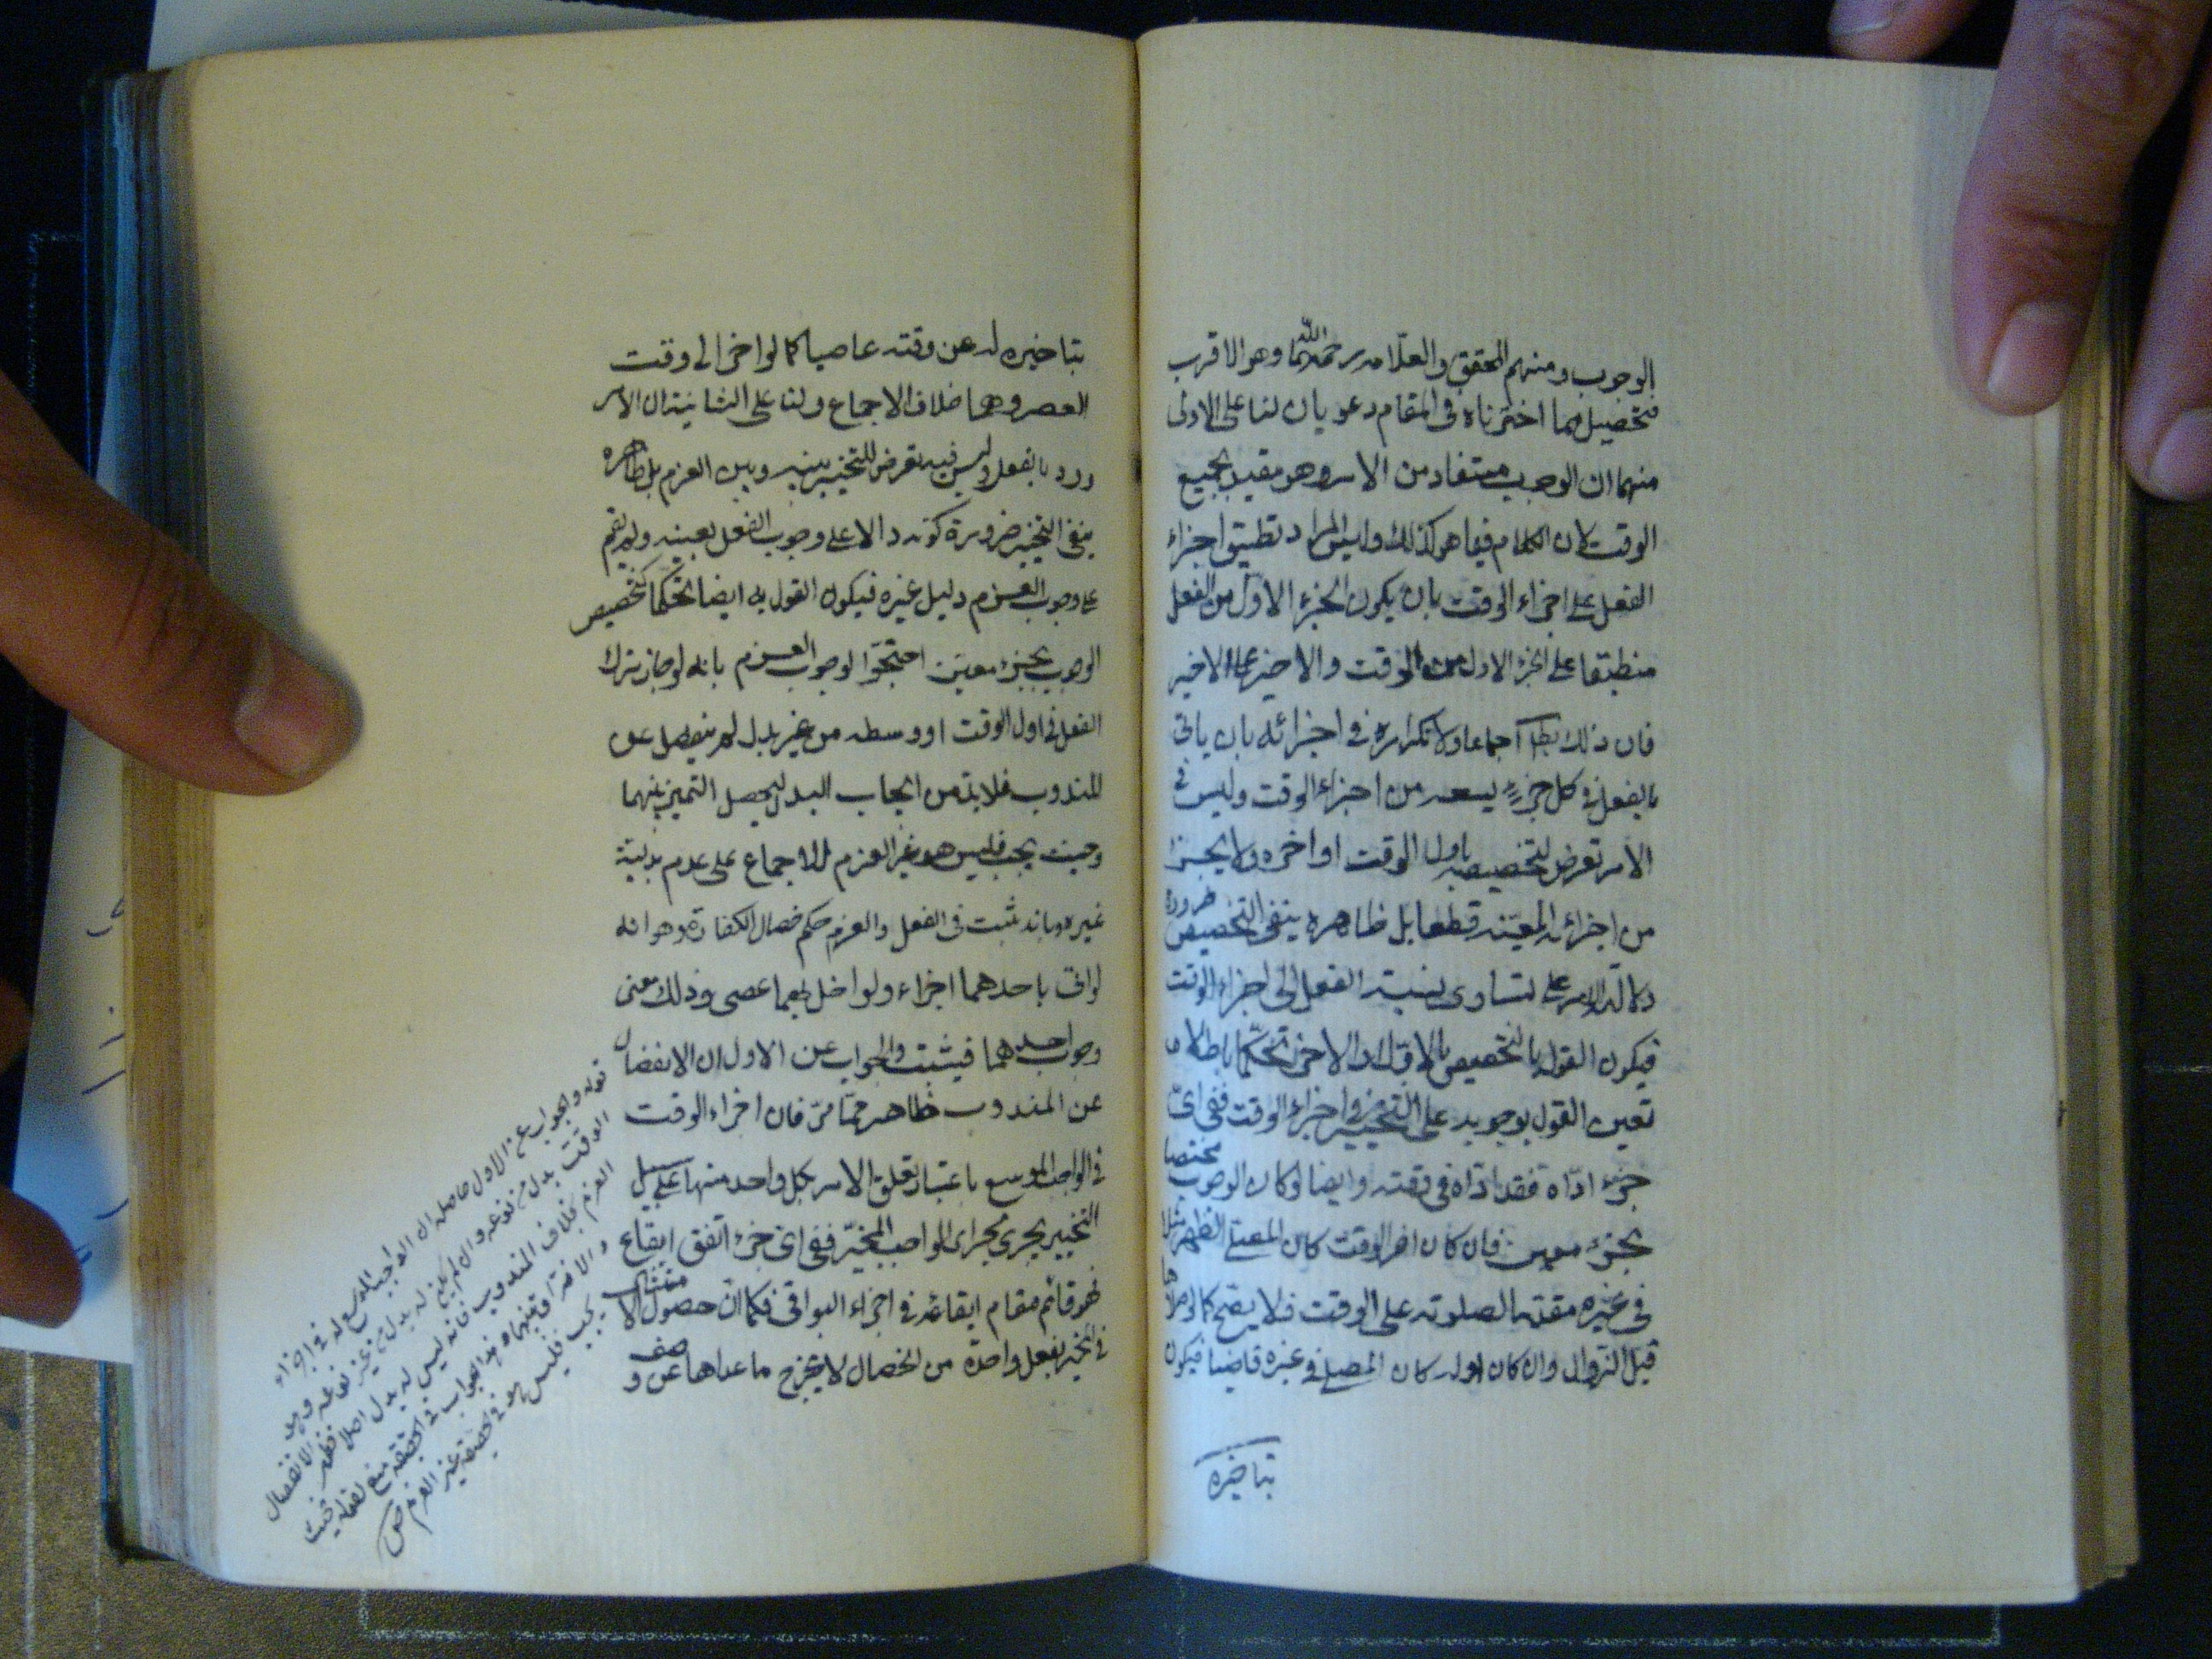 الوجوب ومنهم المحقق والعلامه رحمهما الله وهو الاقرب
فتحصيل مما اخترناه في المقام دعويان لنا على الاولى
منهما ان الوجوب مستفاد من الامر وهو مقيد بجميع
الوقت لان الكلام فيما هو كذلك وليس المراد تطبيق اجزاء
الفعل على اجزاء الوقت بان يكون الجزء الاول من الفعل
منطبقا على الجزء الاول من الوقت والاخير على الاخير
فان ذلك بط اجماعا ولا تكراره في اجزائه بان ياتي
بالفعل في كل جزء يسعه من اجزاء الوقت وليس في
الامر تعرض لتخصيصه باول الوقت او اخره ولا بجزء
من اجزائه المعينه قطعا بل ظاهره ينفي التخصيص ضرورة
دلالة الامر على تساوي نسبة الفعل الى اجزاء الوقت
فيكون القول بالتخصيص بالاول او الاخر تحكما باطلا و
تعين القول بوجوبه على التخيير في اجزاء الوقت ففي اي
جزء اداه فقد اداه في وقته وايضا لو كان الوجوب مختصا
بجزء معين فان كان اخر الوقت كان المصلي للظهر مثلا
في غيره مقدما لصلوته على الوقت فلا يصح كما لو صلاها
قبل الزوال وان كان اوله كان المصلي في غيره قاضيا فيكون
بتاخيره
بتاخيره له عن وقته عاصيا كما لو اخر الى وقت
العصر وهما خلاف الاجماع ولنا على الثانية ان الامر
ورد بالفعل وليس فيه تعرض للتخيير بينه وبين العزم بل ظاهره
ينفي التخيير ضرورة كونه دالا على وجوب الفعل بعينه ولم يقم
على وجوب العزم دليل غيره فيكون القول به ايضا تحكما كتخصيص
الوجوب بجزء معين احتجوا لوجوب العزم بانه لو جاز ترك
الفعل في اول الوقت او وسطه من غير بدل لم ينفصل عن
المندوب فلا بد من ايجاب البدل ليحصل التميز بينهما
وحيث يجب فليس هو غير العزم للاجماع على عدم بدلية
غيره وبانه ثبت في الفعل والعزم حكم خصال الكفارة وهو انه
لو اتى باحدهما اجزاء ولو اخل بهما عصى وذلك معنى
وجوب احدهما فيثبت والجواب عن الاول ان الانفصال
عن المندوب ظاهر مما مر فان اجزاء الوقت
في الواجب الموسع باعتبار تعلق الامر بكل واحد منها على سبيل
التخيير يجري مجرى الواجب المخير ففي اي جزء اتفق ايقاع
فهو قائم مقام ايقاعه في اجزاء البواقي فكما ان حصول الامتثال
في المخير بفعل واحدة من الخصال لا يخرج ما عداها عن وصف
قوله والجواب عن الاول حاصله ان الواجب الموسع له في اجزاء
الوقت بدل من نوعه وان لم يكن له بدل من غير نوعه وهو
العزم بخلاف المندوب فانه ليس له بدل اصلا فظهر الانفصال